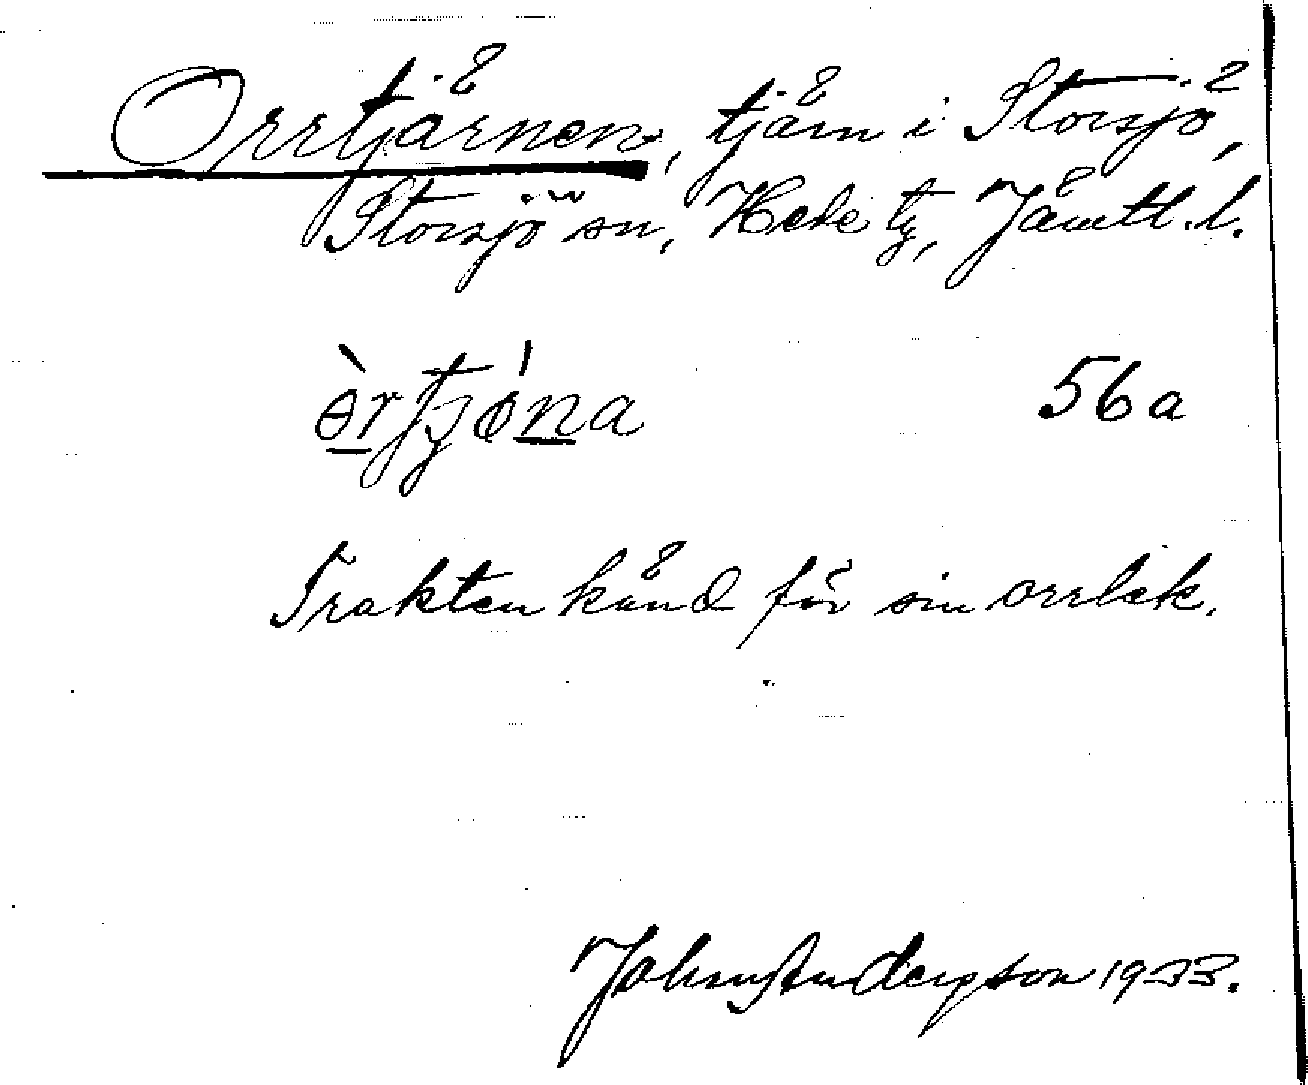 Orrtjärnen, tjärn i Storsjö,
Storsjö sn, Hede tg, Jämtl. l.
56a
Trakten känd för sin orrlek.
John Andersson 1933.